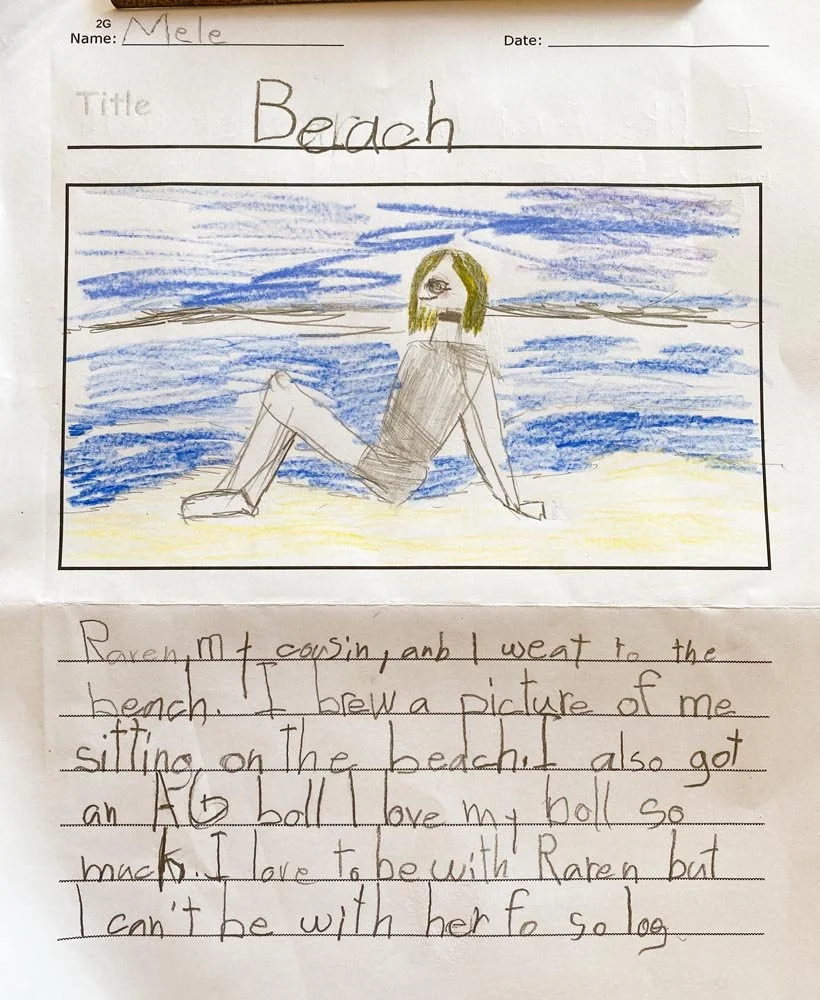 2G
Name: Mele
Date:
Title Beach
Raren, my cousin, anb I weat to the
beach. I brew a picture of me
sitting on the beach. I also got
an AG boll I love my boll so
much. I love to be with Raren but
I can't be with her fo so log